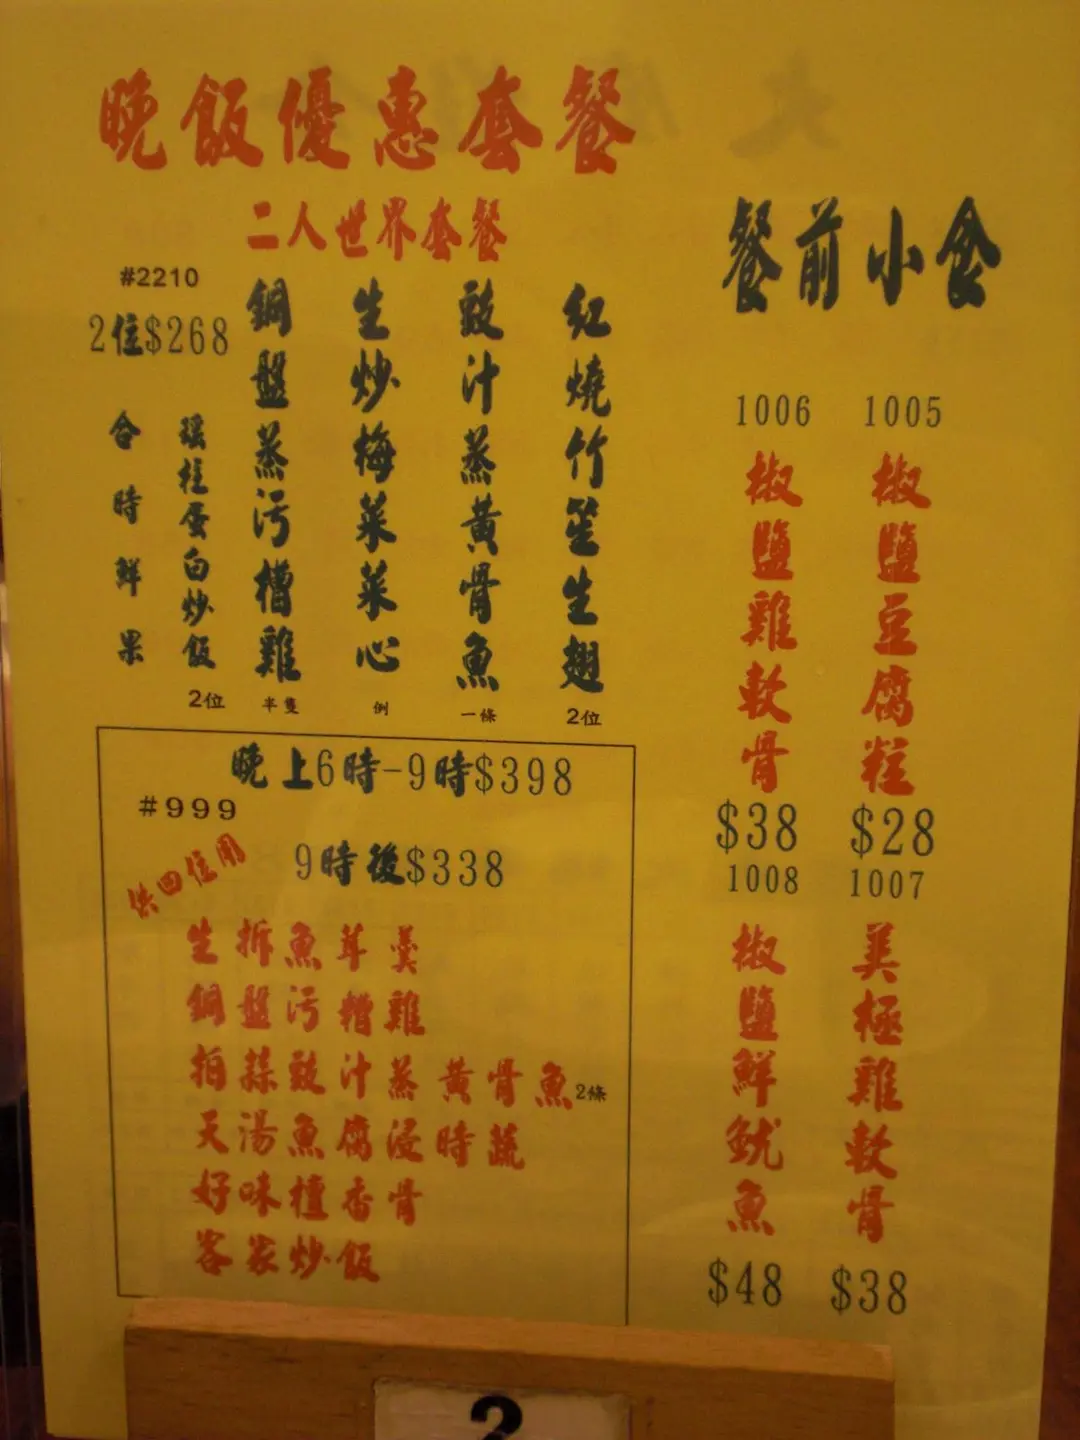 晚飯優惠套餐
二人世界套餐
#2210
2位$268
紅燒竹笙生翅
2位
豉汁蒸黃骨魚
一條
生炒梅菜菜心
例
銅盤蒸污糟雞
半隻
瑤柱蛋白炒飯
2位
合時鮮果
晚上6時-9時$398
#999
9時後$338
供四位用
生拆魚茸羹
銅盤污糟雞
拍蒜豉汁蒸黃骨魚2條
天湯魚腐浸時蔬
好味檀香骨
客家炒飯
餐前小食
1005
椒鹽豆腐粒
$28
1006
椒鹽雞軟骨
$38
1007
美極雞軟骨
$38
1008
椒鹽鮮魷魚
$48
2